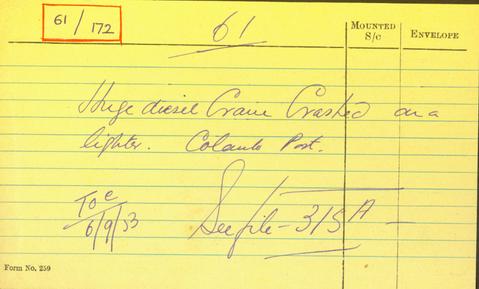 61/172
61
MOUNTED S/C
ENVELOPE
Huge diesel Crane Crashed on a
lighter. Colombo Port.
TOC
6/9/53
See file - 315A
Form No. 259